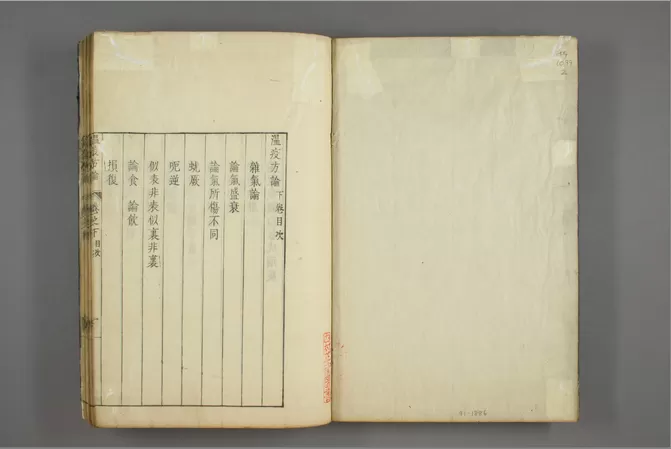 溫疫方論下卷目次
雜氣論
論氣盛衰
論氣所傷不同
蚘厥
呃逆
似表非表似裏非裏
論食 論飲
損復
卷之下 目次